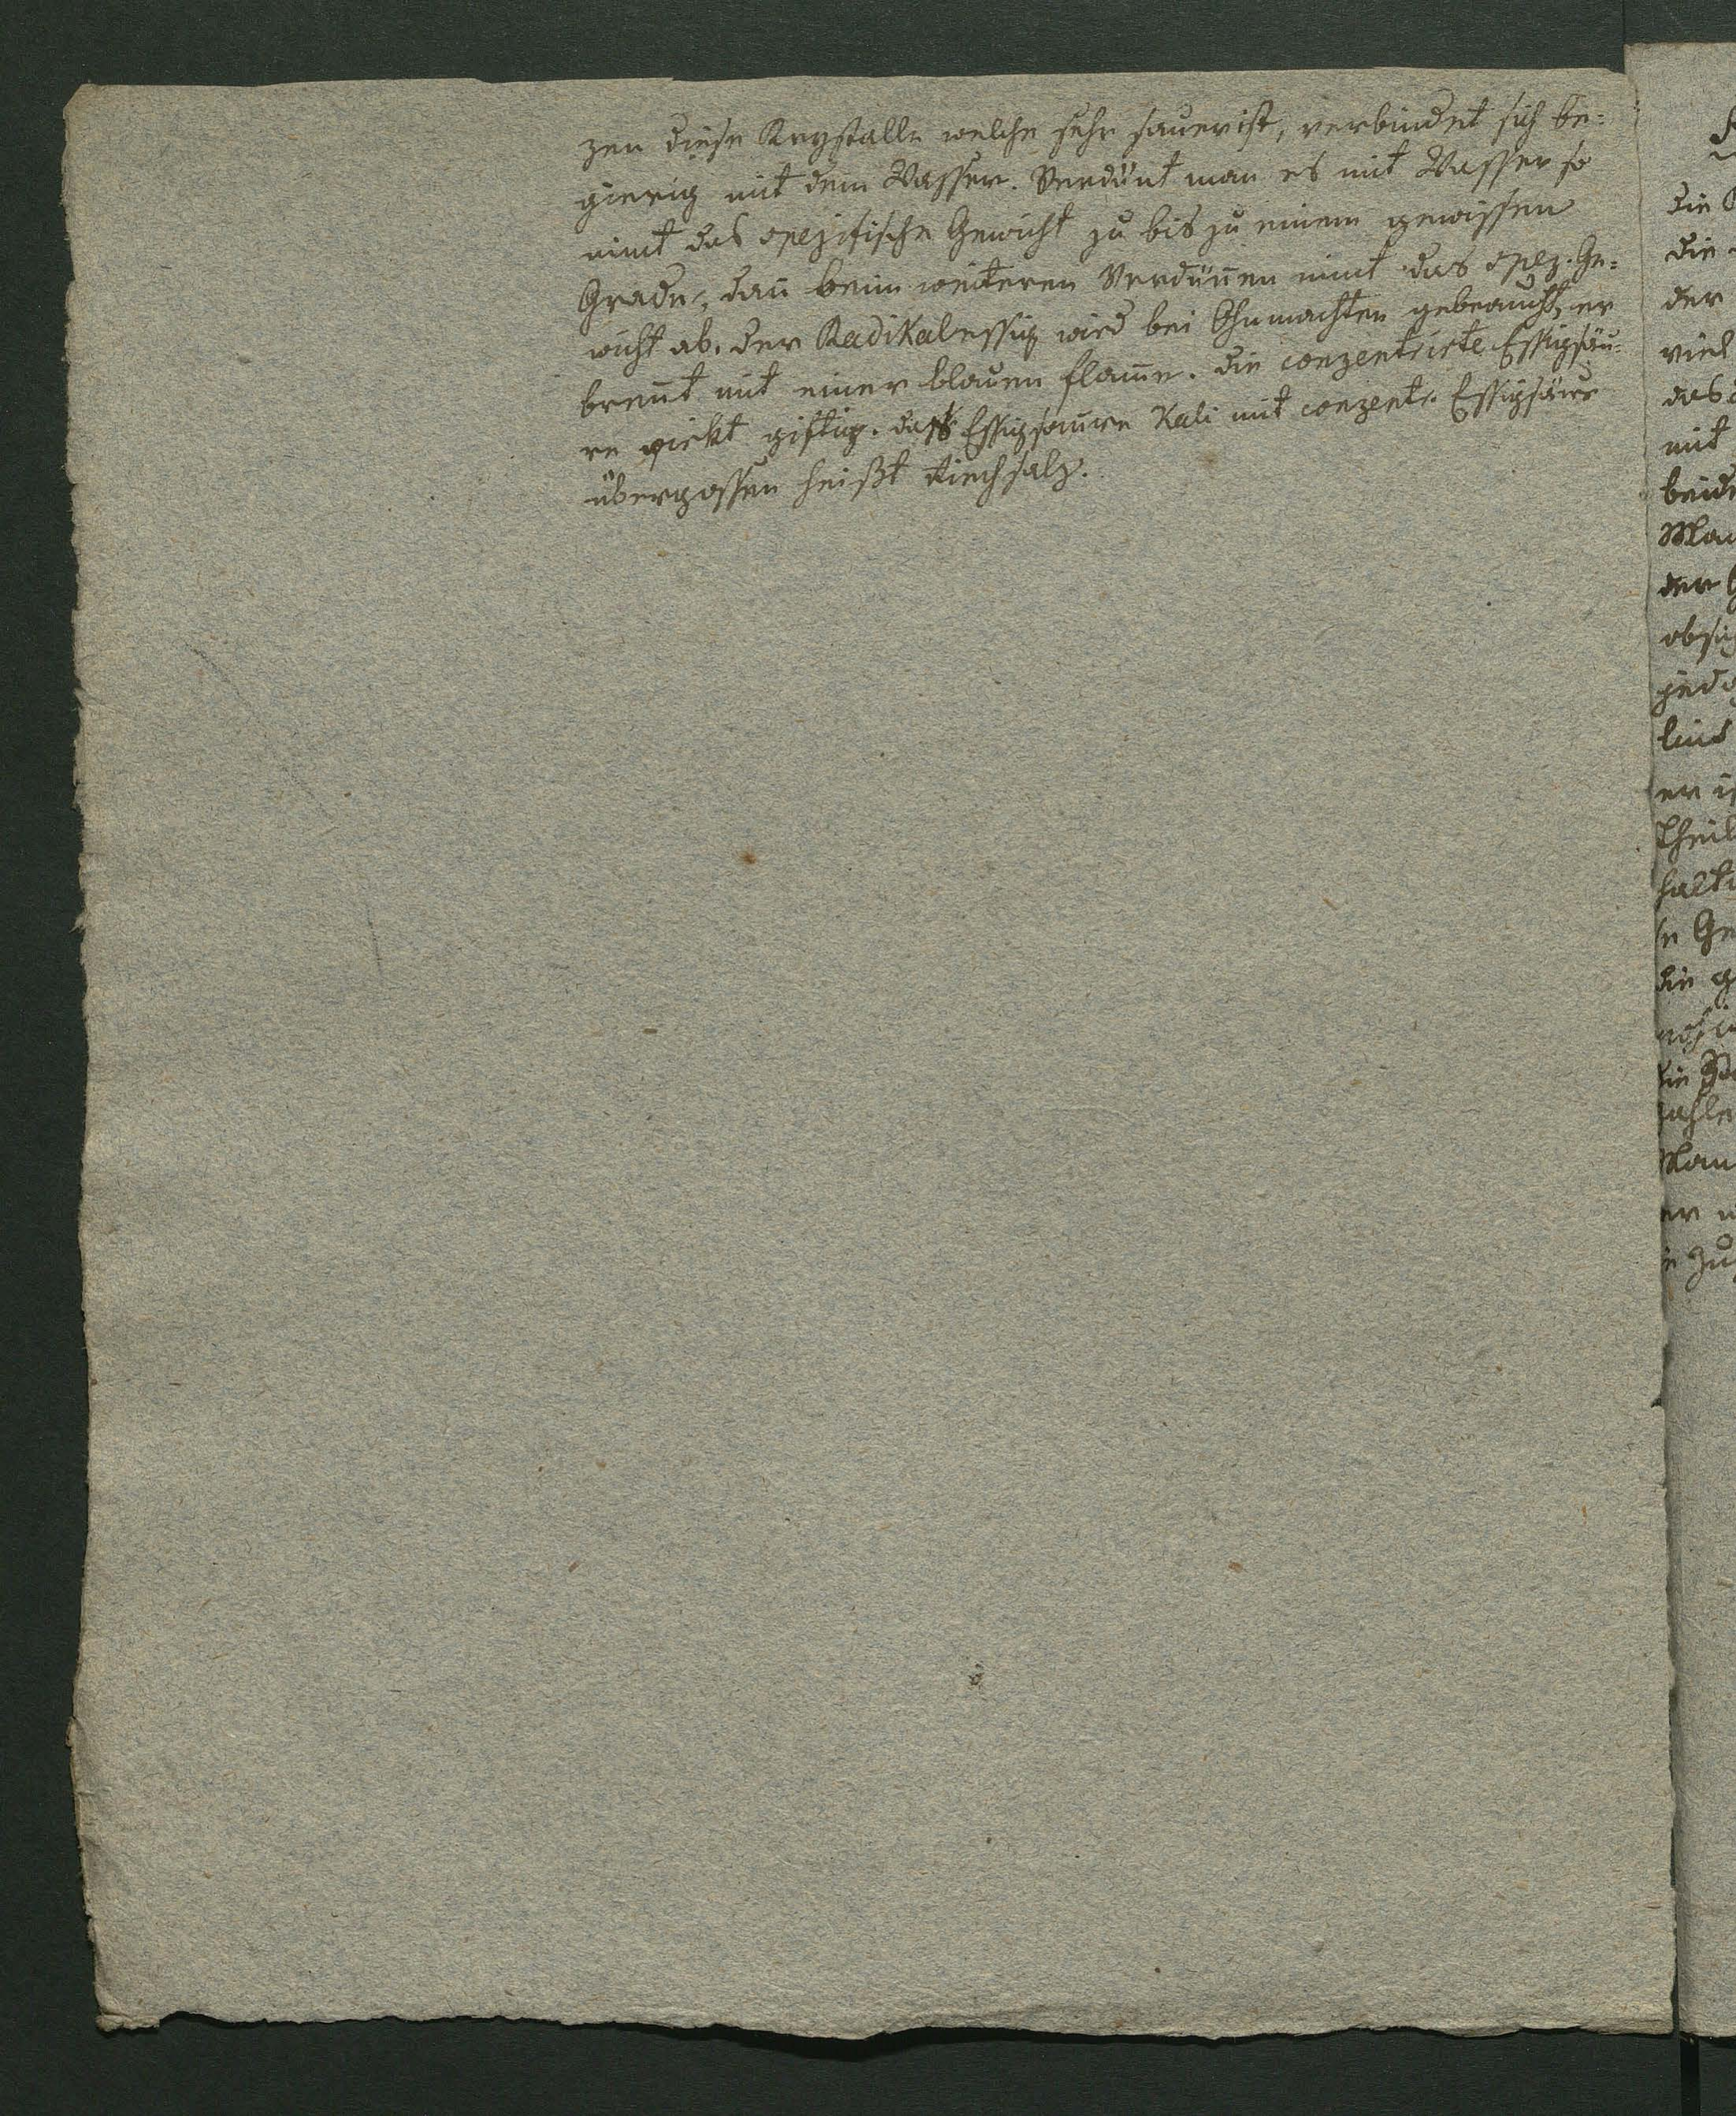 zen diese Krystalle welche sehr sauer ist, verbindet sich be=
gierig mit dem Wasser. Verdünt man es mit Wasser so
nimt das spezifische Gewicht zu bis zu einem gewissen
Grade, dan̄ beim weiteren Verdün̄en nimt das spez. Ge=
wicht ab. der Radikalessig wird bei Ohnmachten gebraucht, er
bren̄t mit einer blauen flam̄e. die conzentrirte Essigsäu=
re wirkt giftig. das Essigsaure Kali mit conzentr. Essigsäure
übergossen heißt Riechsalz.
die
die
der
viel
das
mit
beide
Man
der
jedo
lind
er
Theil
halt
se Ge
die g
die
Man
er
zu